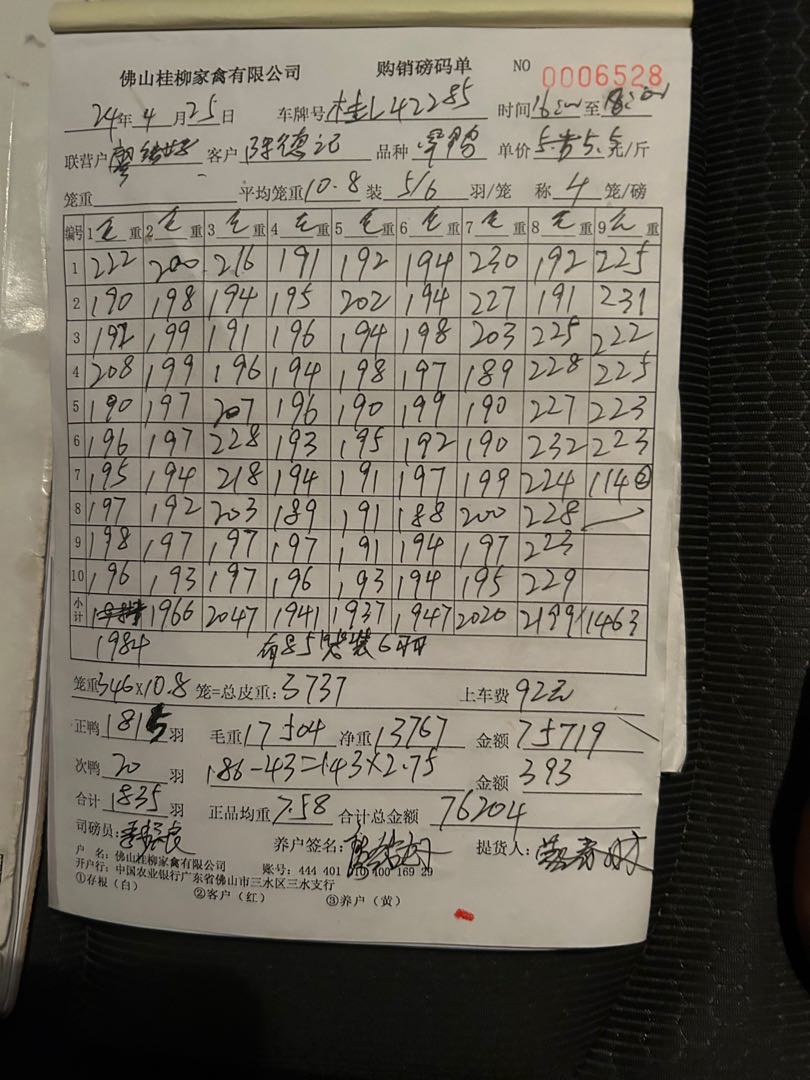 佛山桂柳家禽有限公司 购销磅码单 NO 0006528
24年4月25日 车牌号桂L42285 时间16:00至18:00
联营户廖 客户陈德记 品种 鸭 单价 5.5元/斤
笼重 平均笼重10.8 装5/6羽/笼 称4笼/磅
编号 1毛重 2毛重 3毛重 4毛重 5毛重 6毛重 7毛重 8毛重 9毛重
1 222 200 216 191 192 194 230 192 225
2 190 198 194 195 202 194 227 191 231
3 192 199 191 196 194 198 203 225 222
4 208 199 196 194 198 197 189 228 225
5 190 197 207 196 190 199 190 227 223
6 196 197 228 193 195 192 190 232 223
7 195 194 218 194 191 197 199 224 114②
8 197 192 203 189 191 188 200 228
9 198 197 197 197 191 194 197 223
10 196 193 197 196 193 194 195 229
小计 1966 2047 1941 1937 1947 2020 2199 1463
1984 有85笼装6羽
笼重346×10.8笼=总皮重:3737 上车费92元
正鸭1815羽 毛重17504 净重13767 金额75719
次鸭20羽 186-43=143×2.75 金额393
合计1835羽 正品均重7.58 合计总金额76204
司磅员: 养户签名: 提货人:
户 名:佛山桂柳家禽有限公司 账号:444 401 010 400 169 29
开户行:中国农业银行广东省佛山市三水区三水支行
①存根(白) ②客户(红) ③养户(黄)